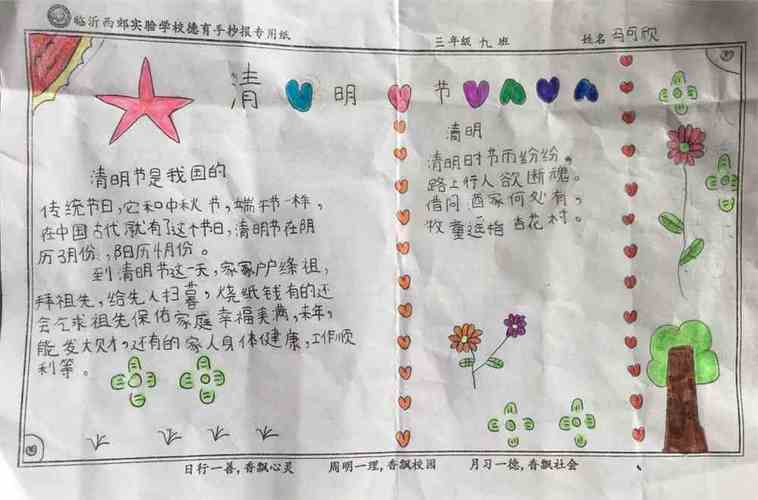 临沂西郊实验学校德育手抄报专用纸 三年级 九班 姓名 马可欣
清明节
清明节是我国的
传统节日,它和中秋节,端午节一样,
在中国古代就有了这个节日,清明节在阴
历3月份,阳历4月份。
到清明节这一天,家家户户缔祖,
拜祖先,给先人扫暮,烧纸钱有的还
会乞求祖先保佑家庭幸福美满,来年,
能发大财,还有的家人身体健康,工作顺
利等。
清明
清明时节雨纷纷,
路上行人欲断魂。
借问酒家何处有,
牧童遥指杏花村。
日行一善,香飘心灵 周明一理,香飘校园 月习一德,香飘社会